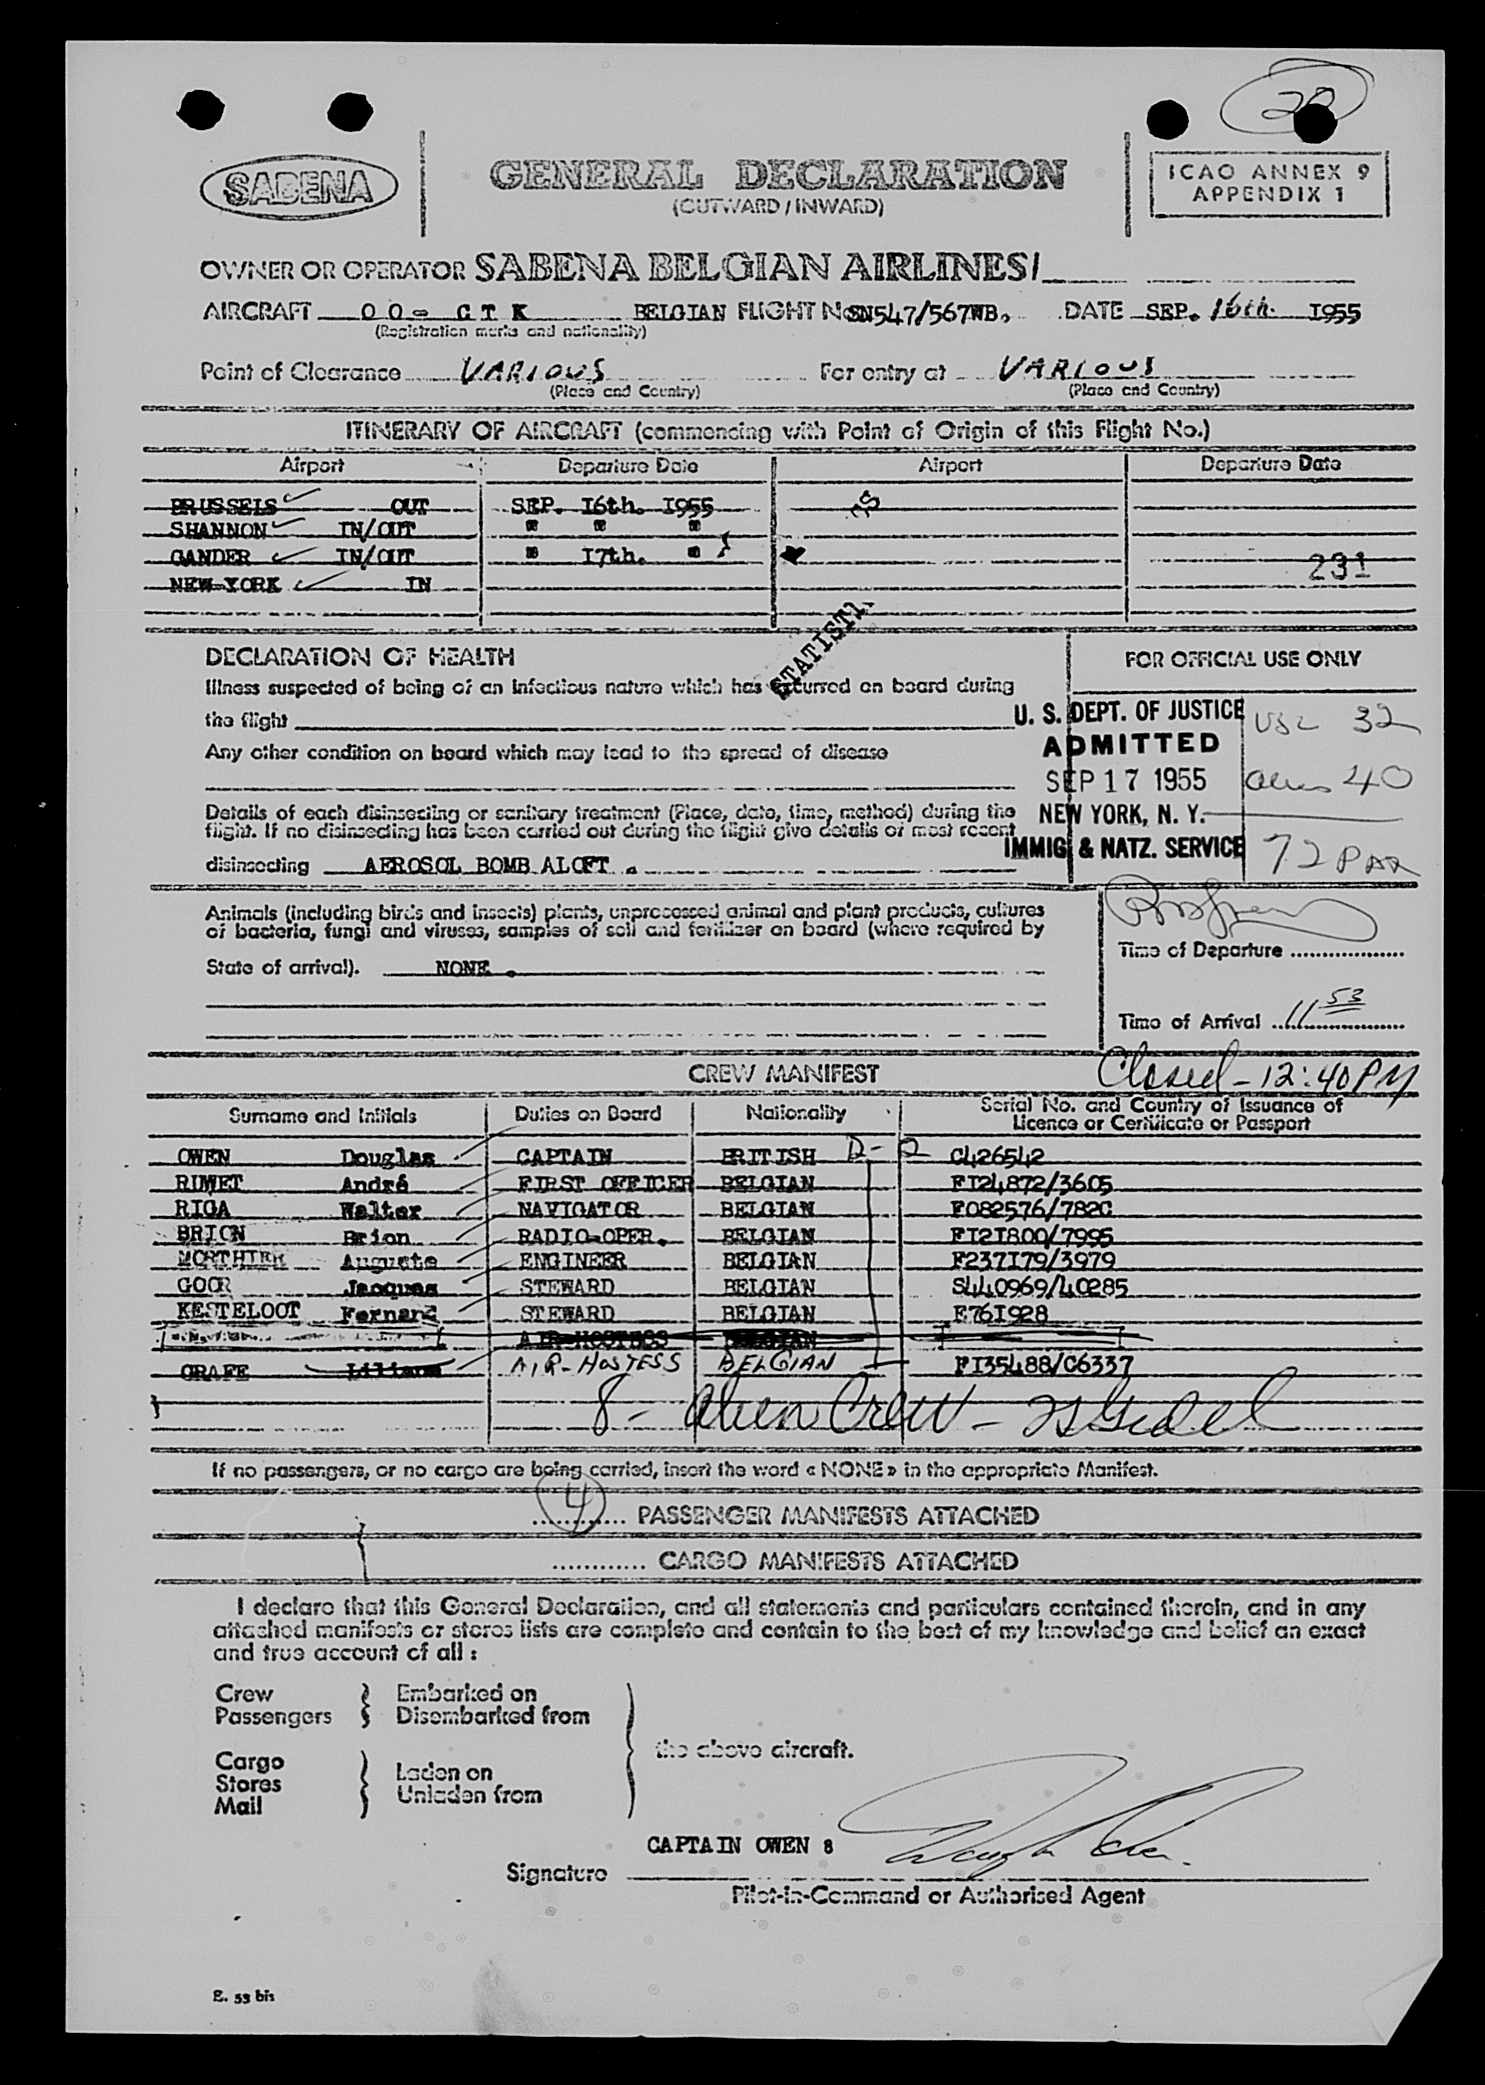 SABENA
GENERAL DECLARATION
(OUTWARD / INWARD)
20
ICAO ANNEX 9
APPENDIX 1
OWNER OR OPERATOR SABENA BELGIAN AIRLINES/
AIRCRAFT OO - CTK BELGIAN FLIGHT No SN547/567WB. DATE SEP. 16th. 1955
(Registration marks and nationality)
Point of Clearance VARIOUS For entry at VARIOUS
(Place and Country) (Place and Country)
ITINERARY OF AIRCRAFT (commencing with Point of Origin of this Flight No.)
Airport Departure Date Airport Departure Date
BRUSSELS OUT SEP. 16th. 1955
SHANNON IN/OUT " " "
GANDER IN/OUT " 17th. "
231
NEW-YORK IN
DECLARATION OF HEALTH
FOR OFFICIAL USE ONLY
Illness suspected of being of an infectious nature which has occurred on board during
the flight
U. S. DEPT. OF JUSTICE
ADMITTED
SEP 17 1955
NEW YORK, N. Y.
IMMIG. & NATZ. SERVICE
32
40
72
Any other condition on board which may lead to the spread of disease
Details of each disinsecting or sanitary treatment (Place, date, time, method) during the
flight. If no disinsecting has been carried out during the flight give details of most recent
disinsecting AEROSOL BOMB ALOFT .
Animals (including birds and insects) plants, unprocessed animal and plant products, cultures
of bacteria, fungi and viruses, samples of soil and fertilizer on board (where required by
State of arrival). NONE .
Time of Departure
Time of Arrival 11 53
Closed - 12:40 PM
CREW MANIFEST
Surname and Initials Duties on Board Nationality Serial No. and Country of Issuance of
Licence or Certificate or Passport
OWEN Douglas CAPTAIN BRITISH D-2 C426542
RIMET André FIRST OFFICER BELGIAN FI24872/3605
RIGA Walter NAVIGATOR BELGIAN F082576/7820
BRION Brion RADIO-OPER. BELGIAN FI21800/7995
MORTHIER Auguste ENGINEER BELGIAN F237179/3979
GOOR Jacques STEWARD BELGIAN S440969/40285
KESTELOOT Fernand STEWARD BELGIAN E761928
AIR-HOSTESS BELGIAN
GRAFE Liliane AIR-HOSTESS BELGIAN FI35488/C6337
8 - Alien Crew -
If no passengers, or no cargo are being carried, insert the word « NONE » in the appropriate Manifest.
4 PASSENGER MANIFESTS ATTACHED
CARGO MANIFESTS ATTACHED
I declare that this General Declaration, and all statements and particulars contained therein, and in any
attached manifests or stores lists are complete and contain to the best of my knowledge and belief an exact
and true account of all :
Crew
Passengers
Embarked on
Disembarked from
Cargo
Stores
Mail
Laden on
Unladen from
the above aircraft.
CAPTAIN OWEN 8
Signature
Pilot-in-Command or Authorised Agent
E. 53 bis